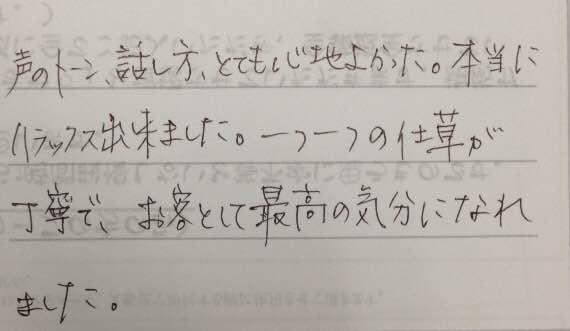 声のトーン、話し方、とても心地よかった。本当に
リラックス出来ました。一つ一つの仕草が
丁寧で、お客として最高の気分になれ
ました。